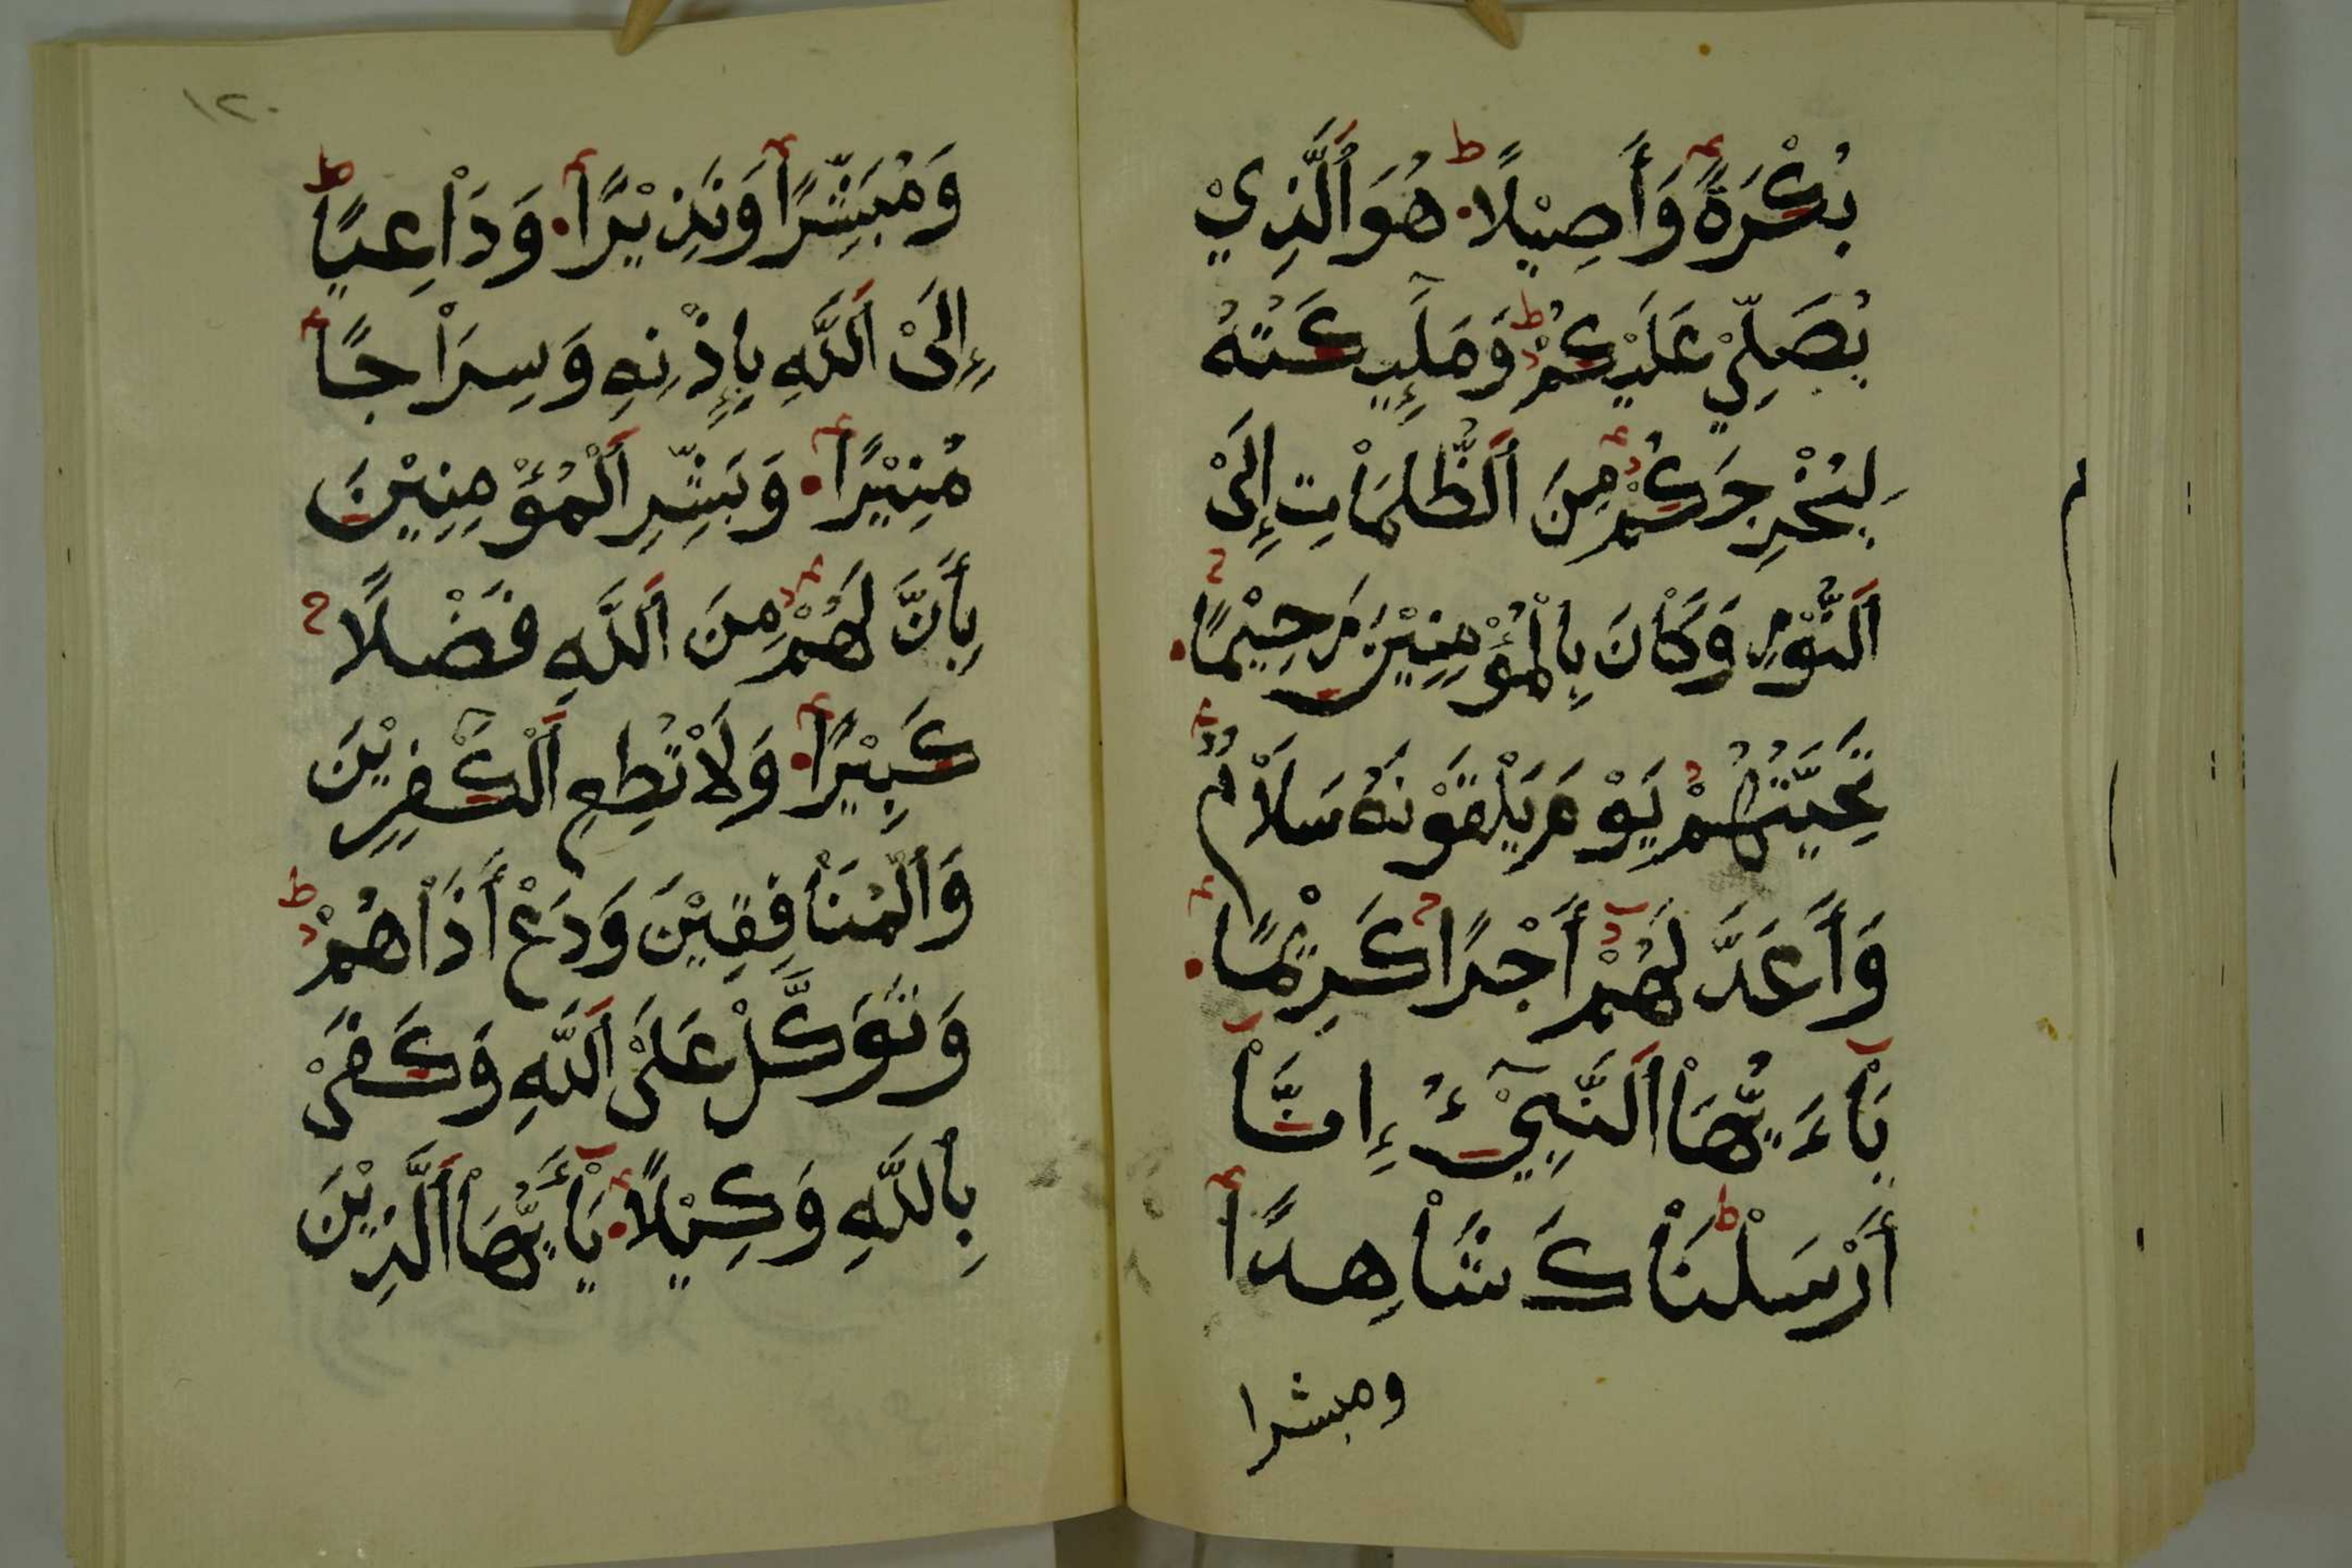 بُكْرَةً وَأَصِيْلًا هُوَ ٱلَّذِيْ
يُصَلِّيْ عَلَيْكُمْ وَمَلَٰٓئِكَتُهُ
لِيُخْرِجَكُمْ مِنَ ٱلظُّلُمَاْتِ إِلَىْ
ٱلنُّوْرِ وَكَاْنَ بِالْمُؤْمِنِيْنَ رَحِيْمًا
تَحِيَّتُهُمْ يَوْمَ يَلْقَوْنَهُ سَلَاْمٌ
وَأَعَدَّ لَهُمْ أَجْرًا كَرِيْمًا
يَاْءَيُّهَاْ ٱلنَّبِيْٓءُ إِنَّاْ
أَرْسَلْنَاْكَ شَاْهِدًا
ومبشرا
١٢٠
وَمُبَشِّرًا وَنَذِيْرًا وَدَاْعِيًا
إِلَىْ ٱللَّهِ بِإِذْنِهِ وَسِرَاْجًا
مُنِيْرًا وَبَشِّرِ ٱلْمُؤْمِنِيْنَ
بِأَنَّ لَهُمْ مِنَ ٱللَّهِ فَضْلًا
كَبِيْرًا وَلَاْ تُطِعِ ٱلْكَٰفِرِيْنَ
وَٱلْمُنَاْفِقِيْنَ وَدَعْ أَذَاْهُمْ
وَتَوَكَّلْ عَلَىْ ٱللَّهِ وَكَفَىْ
بِٱللَّهِ وَكِيْلًا يَاْأَيُّهَاْ ٱلَّذِيْنَ